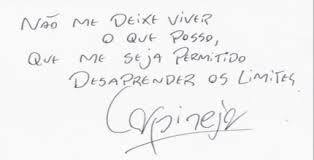 NÃO ME DEIXE VIVER
O QUE POSSO,
QUE ME SEJA PERMITIDO
DESAPRENDER OS LIMITES.
Carpinejar